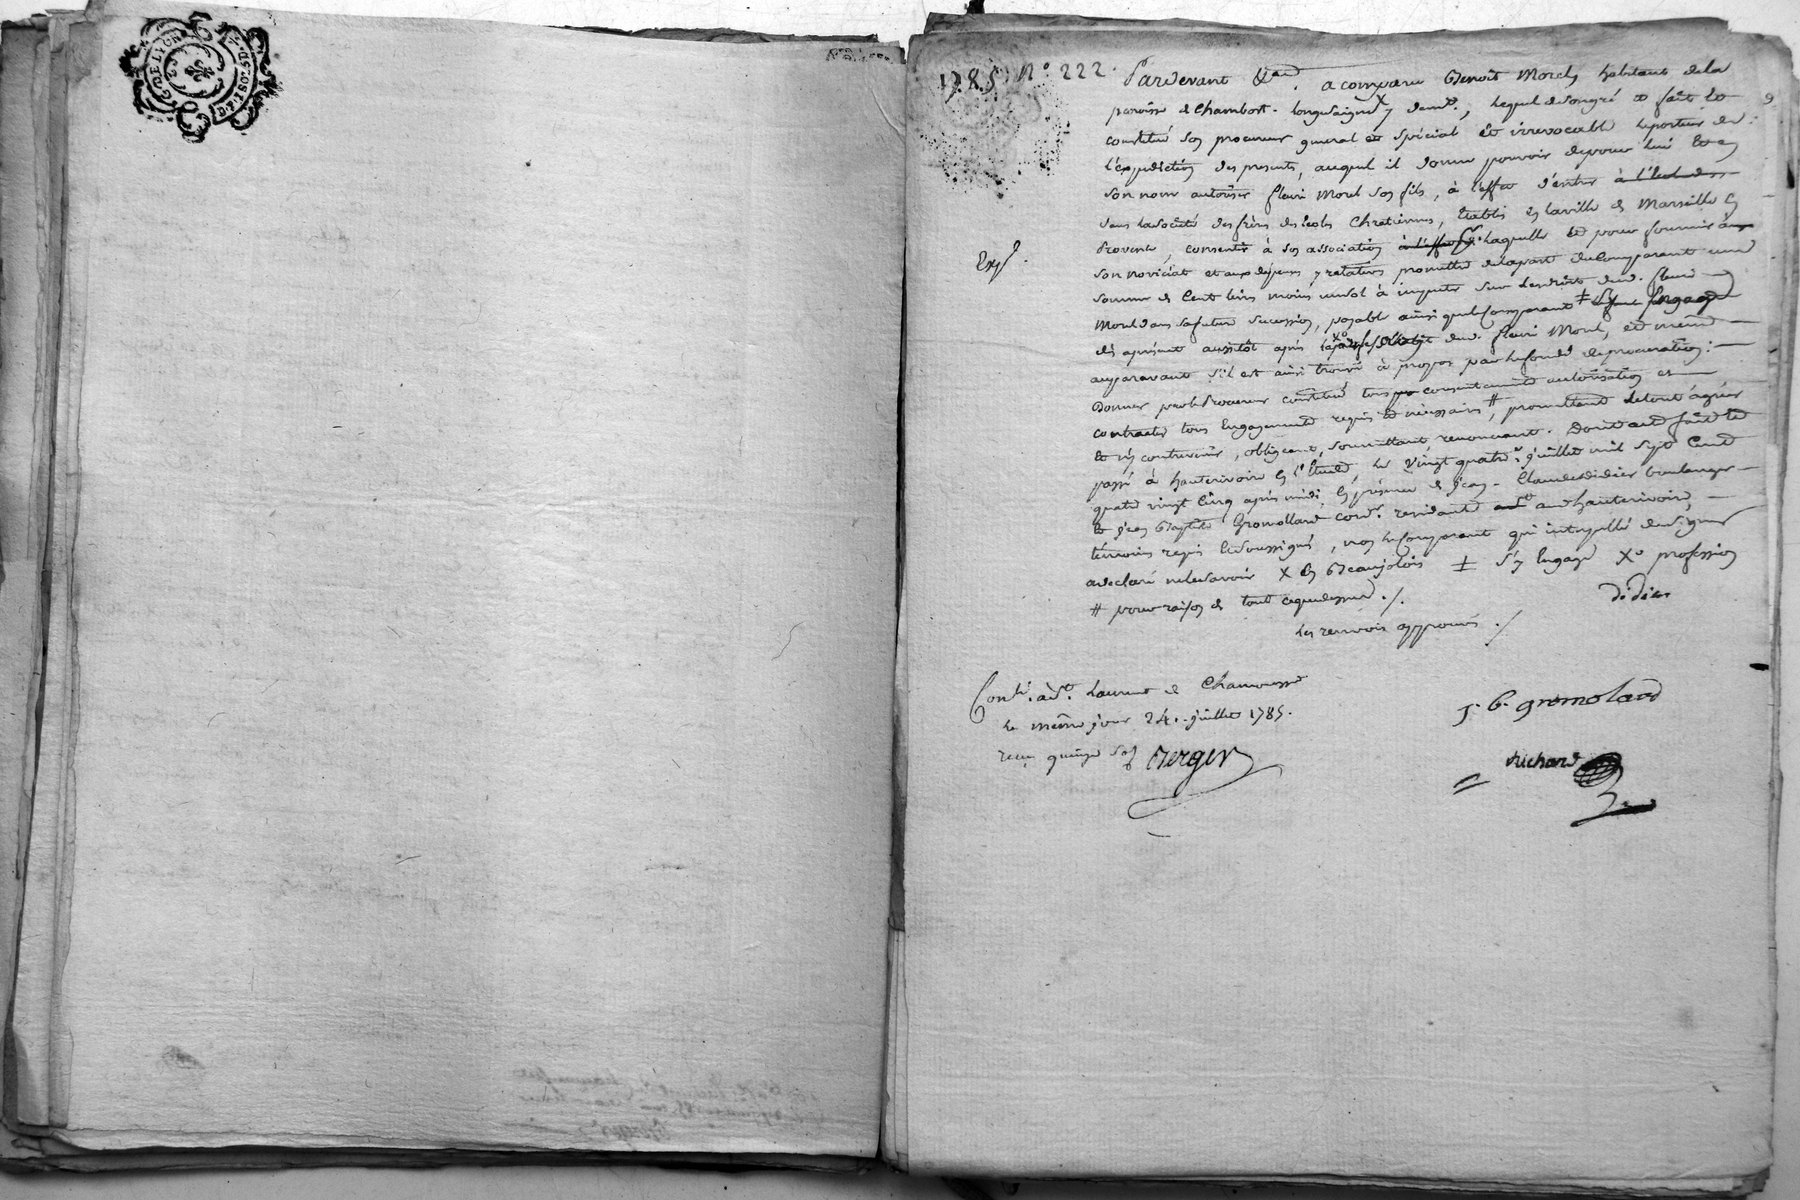 G. DE LYON
1785 N° 222.
Pardevant &c. a comparu Benoit Morel, habitant de la
paroisse de Chambost-Longuesaigne X y demt., lequel de son gré a fait et
constitué son procureur general et spécial et irrevocable le porteur de
l'expedition des presents, auquel il donne pouvoir de pour lui et en
son nom autoriser fleuri Morel son fils, à l'effet d'entrer
dans la société des frères des écoles Chretiennes, Etablis en la ville de Marseille en
Provence, consentir à son association à laquelle et pour fournir à
son noviciat et aux depenses y relatives promettre de la part du comparant une
somme de Cent livres moins un sol à imputer sur les droits dud. fleuri
Morel dans sa future succession, payable ainsi que le Comparant ‡
dès aprésent aussitôt après la X° dud. fleuri Morel, et même
auparavant s'il est ainsi trouvé à propos par le fondé de procuration:
Donner par le Procureur constitué tous consentements autorisation et
contracter tous Engagements requis et nécessaires #, promettant le tout agréer
et n'y contrevenir, obligeant, soumettant renonceant. Dont acte fait et
passé à hauterivoire en l'Etude, le vingt quatre juillet mil sept Cent
quatre vingt Cinq après midi, en présence de Jean-Claude didier boulanger
et Jean Baptiste Gromollard cordr. residants aud. hauterivoire,
témoins requis et soussignés, non le Comparant qui interpellé de signer
a declaré ne le savoir X en Beaujolois ‡ s'y Engage X° profession
# pour raison de tout ce que dessus ./.
didier
Les renvois approuvés ./
Exp.
Conlé. à St. Laurent de Chamousset
le même jour 24. juillet 1785.
recu quinze sols Berger
J. B. gromolard
Richard